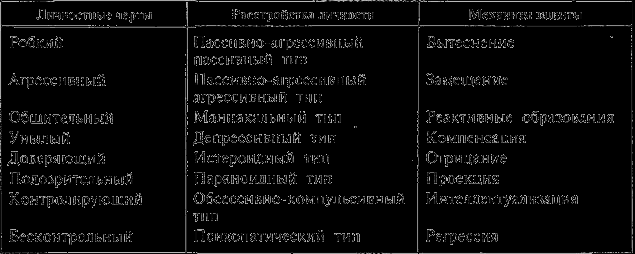 Личностные черты Расстройства личности Механизм защиты
Робкий Пассивно-агрессивный Вытеснение
пассивный тип
Агрессивный Пассивно-агрессивный Замещение
агрессивный тип
Общительный Маниакальный тип Реактивные образования
Унылый Депрессивный тип Компенсация
Доверяющий Истероидный тип Отрицание
Подозрительный Параноидный тип Проекция
Контролирующий Обсессивно-компульсивный Интеллектуализация
тип
Бесконтрольный Психопатический тип Регрессия